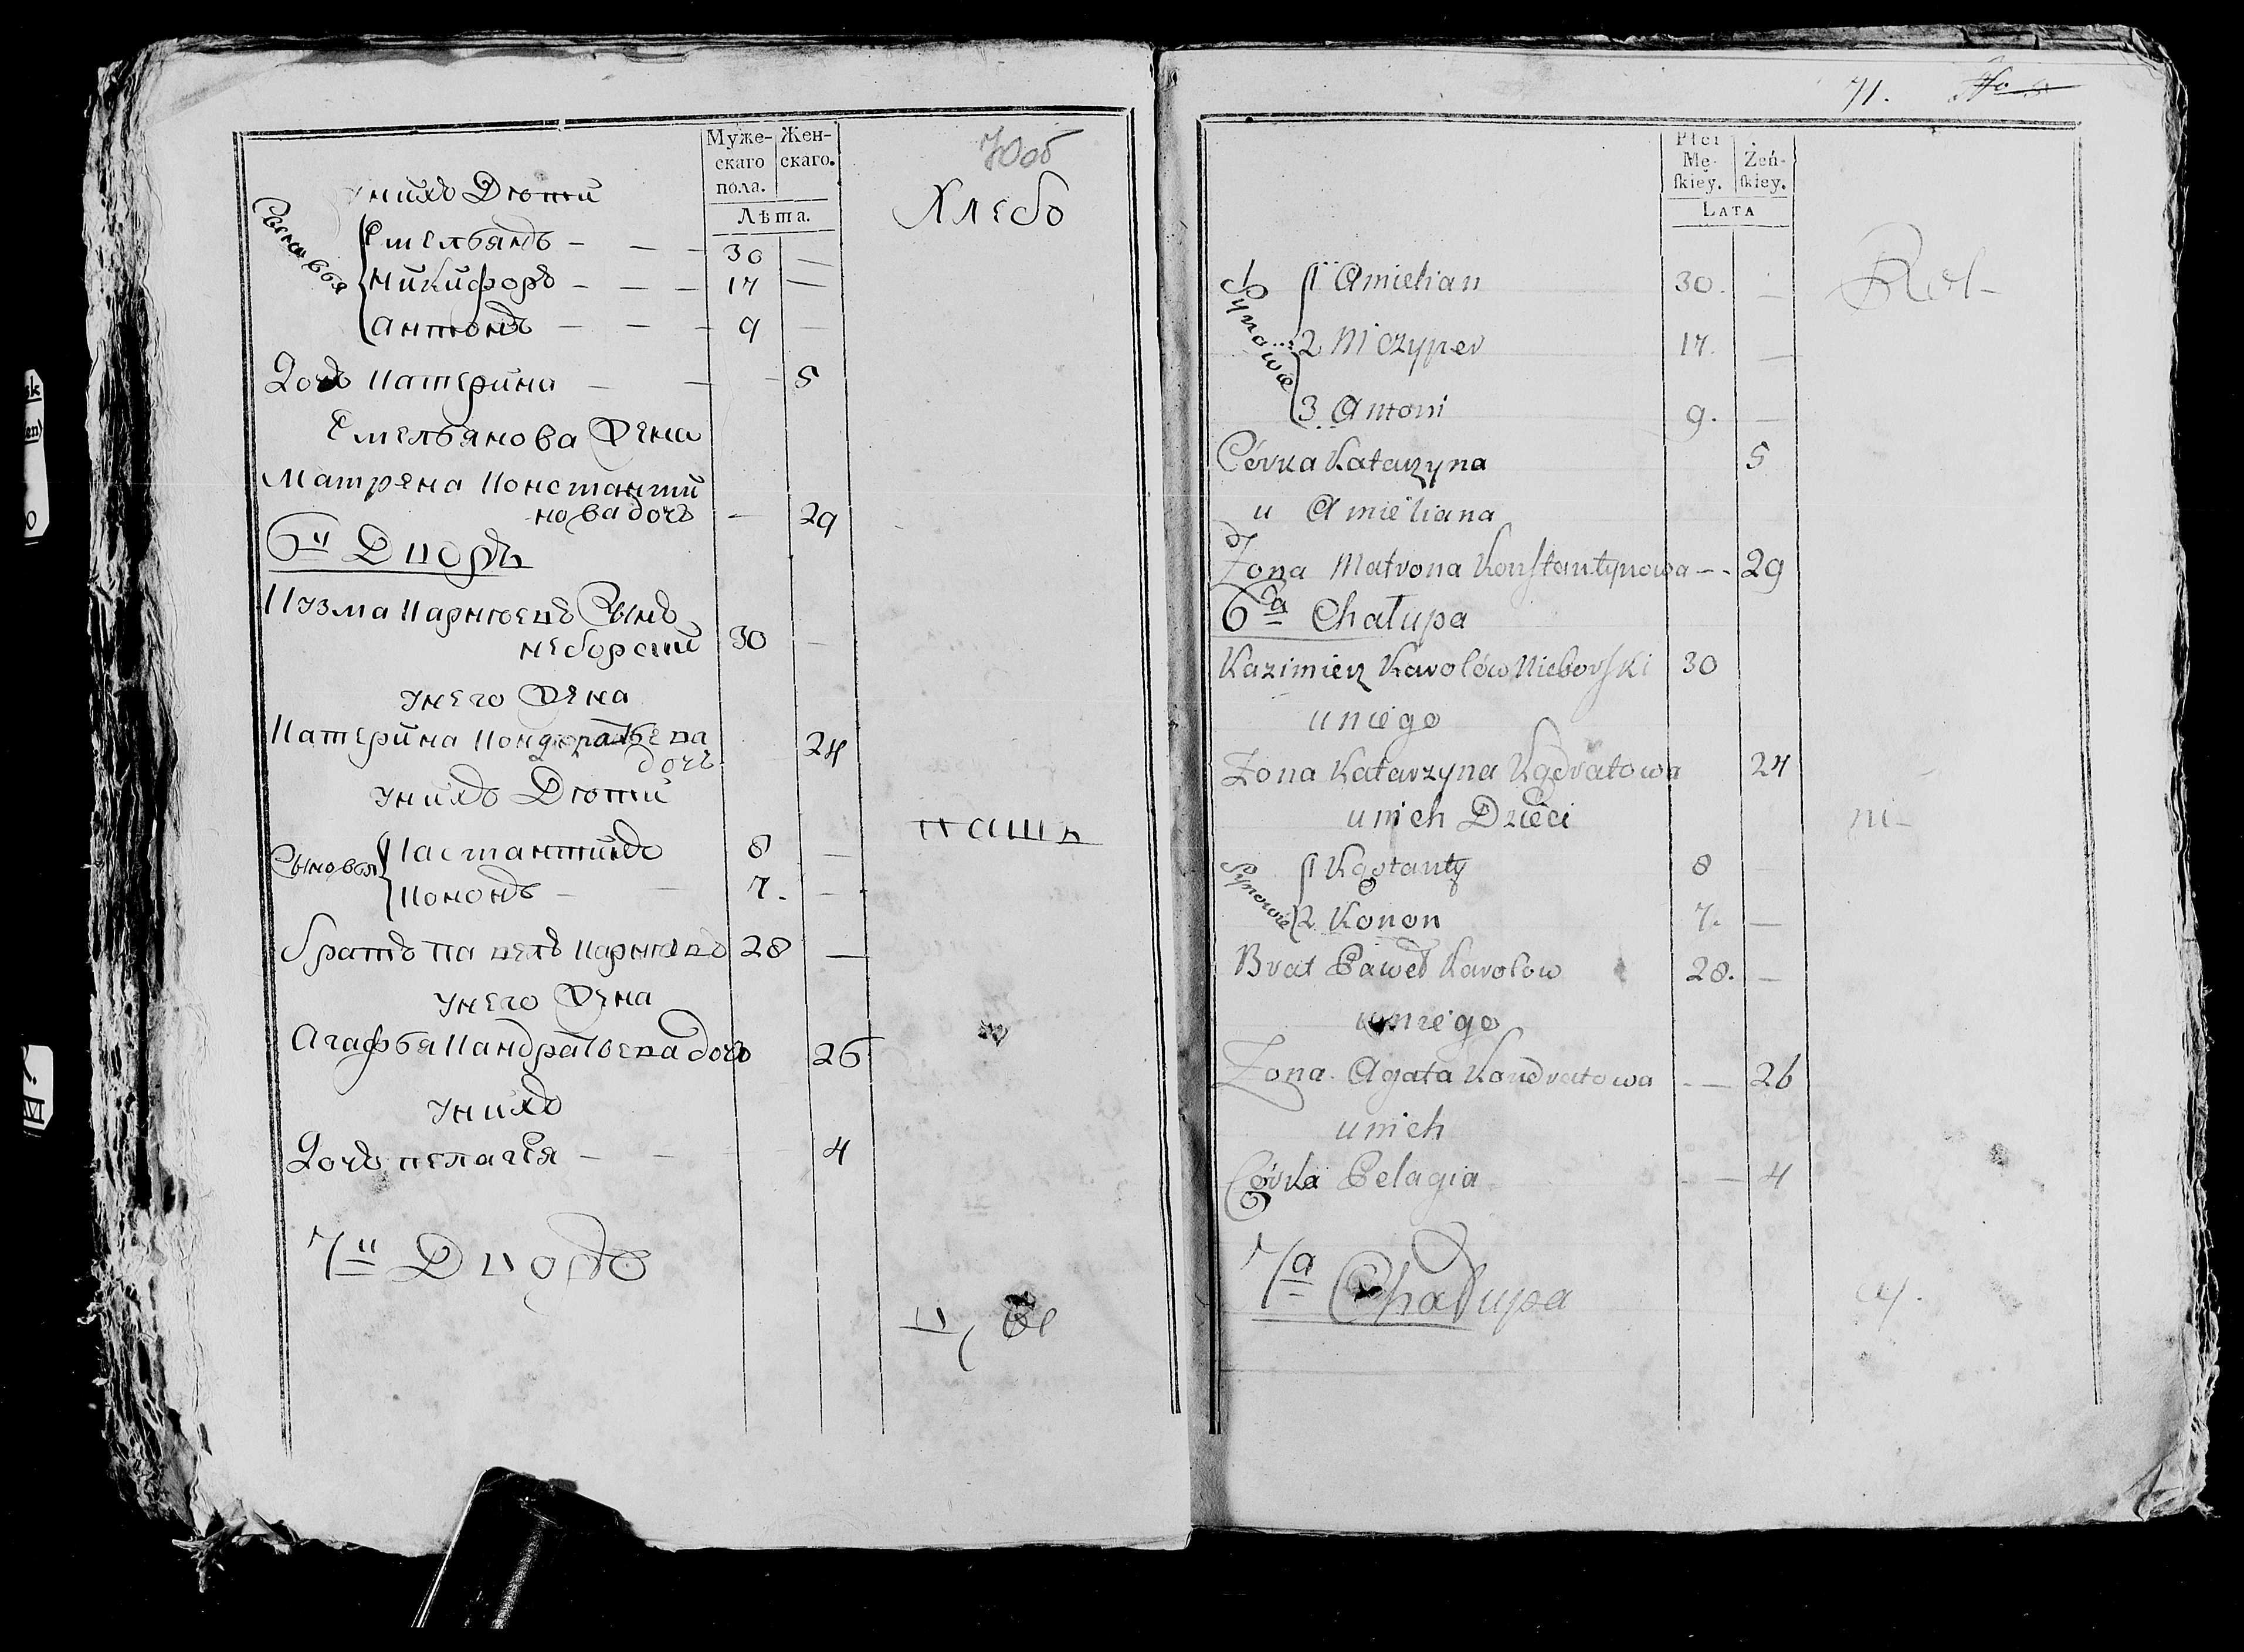 Муже-
скаго
пола.
Жен-
скаго.
Лѣта.
70об
Хлебо
у нихъ Дѣти
Сыновья
Емельянъ — — — 30 —
Никифоръ — — — 17 —
Антонъ — — — 9 —
Дочь Катерина — — — 5
Емельянова Жена
Матрена Константи
нова дочь — 29
6й Дворъ
Кузма Карнѣевъ Сынъ
неборски 30 —
у него Жена
Катерина Кондратьева
дочь 24
у нихъ Дѣти
пашъ
Сыновья
Кастантинъ 8 —
Кононъ — — 7. —
братъ Павелъ Карнѣевъ 28 —
у него Жена
Агафья Кандратьева дочь 26
у нихъ
Дочь пелагея — — — 4
7й Дворъ
71.
Płci
Mę-
skiey.
Żeń-
skiey.
LATA
Rot-
Synowie
1 Amielian 30. —
2 Niczyper 17. —
3 Antoni 9. —
Córka Katarzyna 5
u Amieliana
Żona Matrona Konstantynowa — - 29
6a Chałupa
Kazimierz Karolów Nieborski 30
u niego
Żona Katarzyna Kądratowa 24
u nich Dzieci
ni-
Synowie
1 Kąstanty 8 —
2 Konon 7. —
Brat Paweł Karolow 28. —
u niego
Żona Agata Kondratowa - — 26
u nich
Córka Pelagia - — 4
7a Chałupa